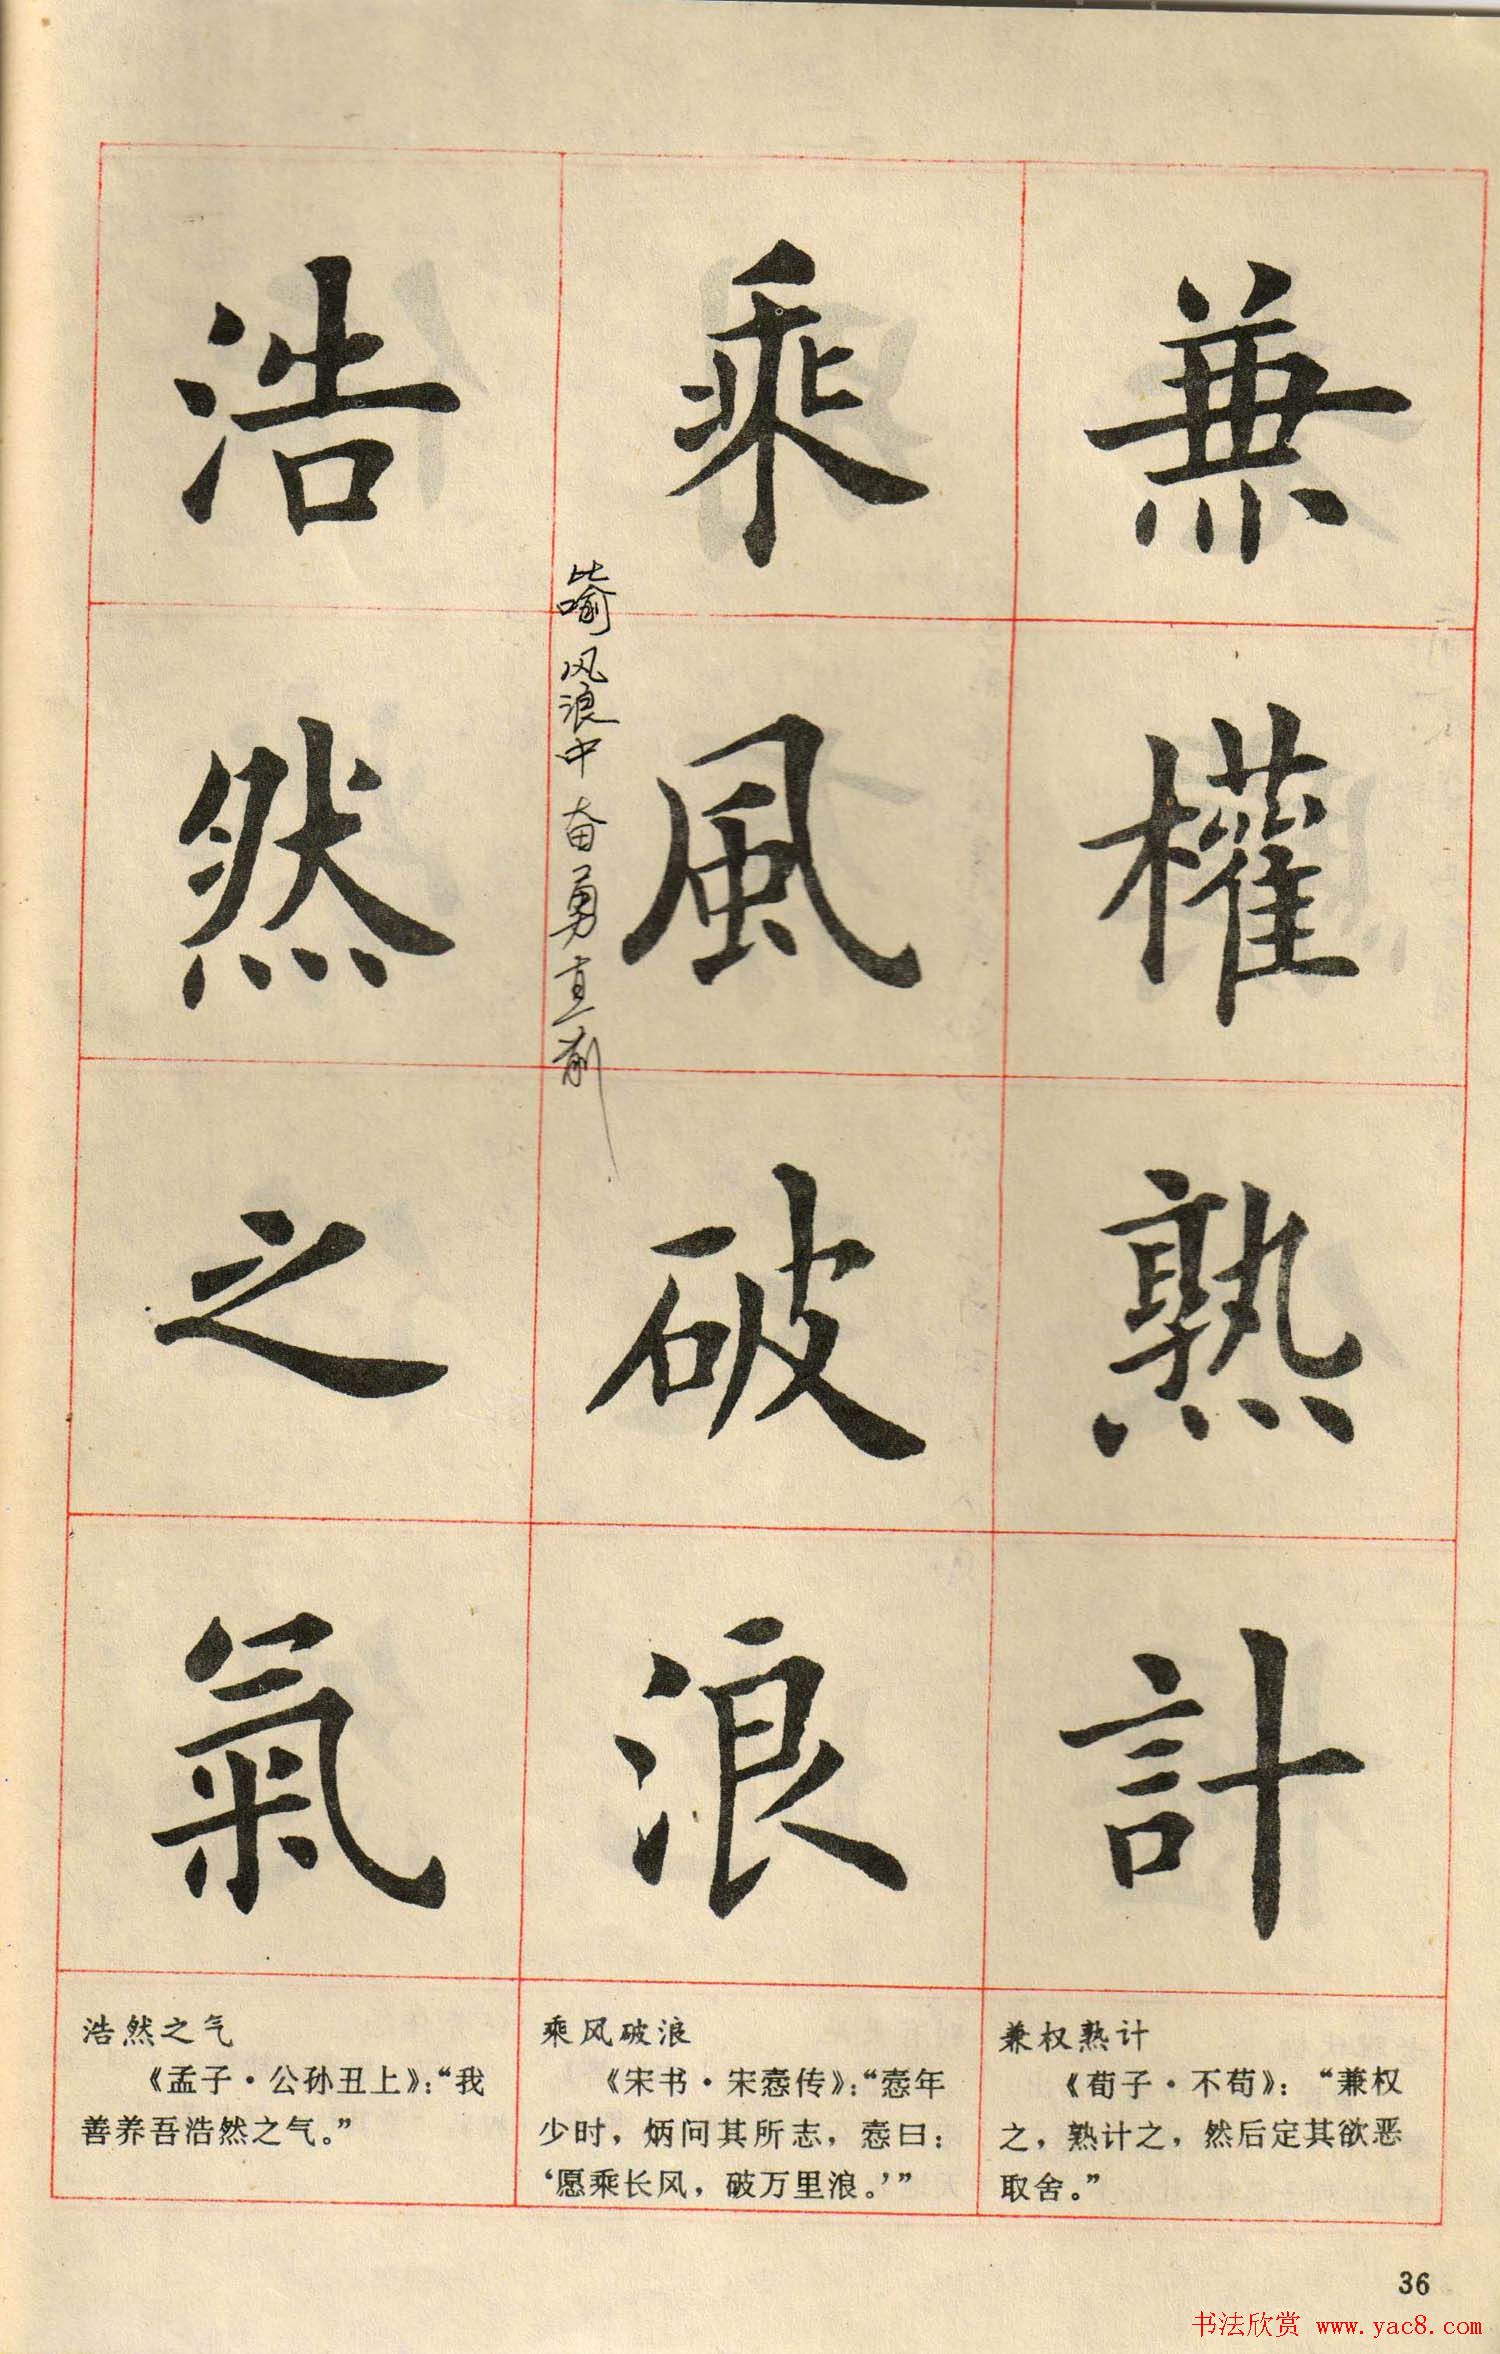 兼權熟計
乘風破浪
浩然之氣
比喻风浪中奋勇直前
兼权熟计
《荀子·不苟》：“兼权
之，熟计之，然后定其欲恶
取舍。”
乘风破浪
《宋书·宋悫传》：“悫年
少时，炳问其所志，悫曰：
‘愿乘长风，破万里浪。’”
浩然之气
《孟子·公孙丑上》：“我
善养吾浩然之气。”
36
书法欣赏 www.yac8.com